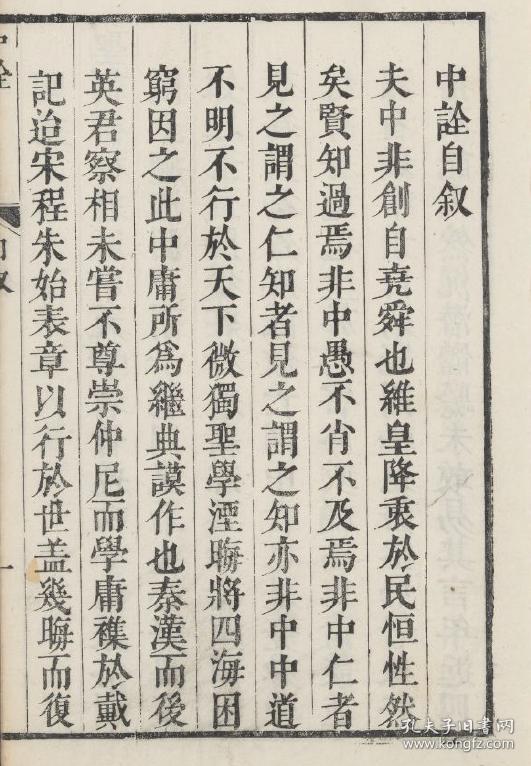 中詮自叙
夫中非創自堯舜也維皇降衷於民恒性然
矣賢知過焉非中愚不肖不及焉非中仁者
見之謂之仁知者見之謂之知亦非中中道
不明不行於天下微獨聖學湮晦將四海困
窮因之此中庸所為繼典謨作也秦漢而後
英君察相未嘗不尊崇仲尼而學庸襍於戴
記迨宋程朱始表章以行於世盖幾晦而復
一
孔夫子旧书网
www.kongfz.com